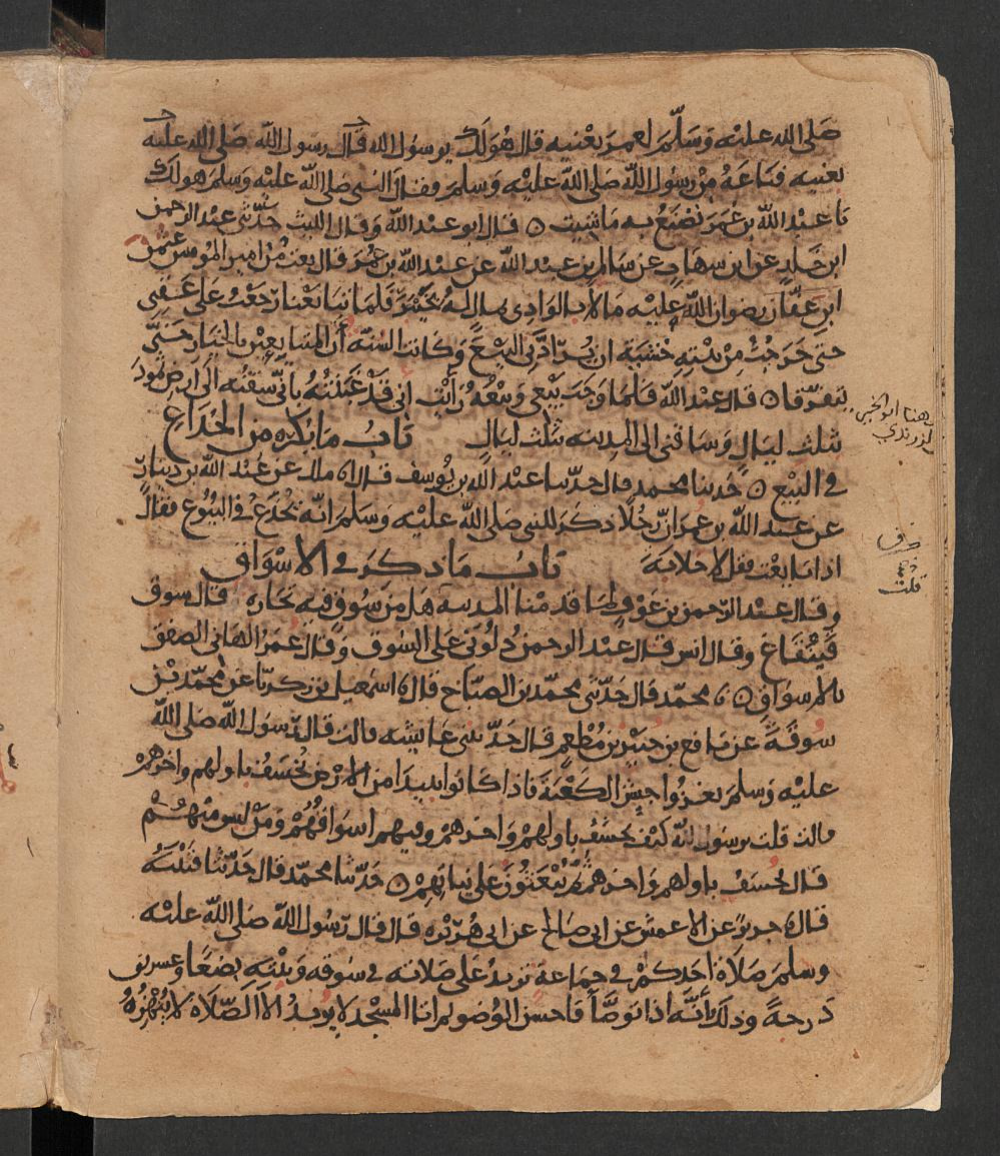 صلى الله عليه وسلم لعمر بعنيه قال هو لك يرسول الله قال رسول الله صلى الله عليه
بعنيه فباعه من رسول الله صلى الله عليه وسلم فقال النبي صلى الله عليه وسلم هو لك
يا عبد الله بن عمر تصنع به ما شيت ه قال ابو عبد الله وقال الليث حدثني عبد الرحمن
ابن خالد عن ابن شهاب عن سالم بن عبد الله عن عبد الله بن عمر قال بعت من امير المومنين عثمن
ابن عفان رضوان الله عليه مالا بالوادي بمال له بخيبر فلما تبايعنا رجعت على عقبي
حتى خرجت من بيته خشية ان يرادني البيع وكانت السنة أن المتبايعين بالخيار حتى
يتفرقا ه قال عبد الله فلما وجب بيعي وبيعه رأيت اني قد غبنته بأني سقته الى ارض ثمود
بثلث ليال وساقني الى المدينه بثلث ليال باب ما يكره من الخداع
في البيع ه حدثنا محمد قال حدثنا عبد الله بن يوسف قال انا ملك عن عبد الله بن دينار
عن عبد الله بن عمر ان رجلا ذكر للنبي صلى الله عليه وسلم انه يخدع في البيوع فقال
اذا بايعت فقل لا خلابة باب ما ذكر في الاسواق
وقال عبد الرحمن بن عوف لما قدمنا المدينه هل من سوق فيه تجارة قال سوق
قينقاع وقال انس قال عبد الرحمن دلوني على السوق وقال عمر الهاني الصفق
بالاسواق ه محمد قال حدثني محمد بن الصباح قال اسمعيل بن زكريا عن محمد بن
سوقة عن نافع بن جبير بن مطعم قال حدثتني عايشه قالت قال رسول الله صلى الله
عليه وسلم يغزوا جيش الكعبة فاذا كانوا ببيدا من الارض يخسف باولهم واخرهم
قالت قلت يرسول الله كيف يخسف باولهم واخرهم وفيهم اسواقهم ومن ليس منهم
قال يخسف باولهم واخرهم ثم يبعثون على نياتهم ه حدثنا محمد قال حدثنا قتيبة
قال جرير عن الاعمش عن ابي صالح عن ابي هريره قال قال رسول الله صلى الله عليه
وسلم صلاة احدكم في جماعة تزيد على صلاته في سوقه وبيته بضعا وعشرين
درجة وذلك بأنه اذا توضأ فاحسن الوضو ثم اتا المسجد لا يريد الا الصلاة لا ينهزه
قلت